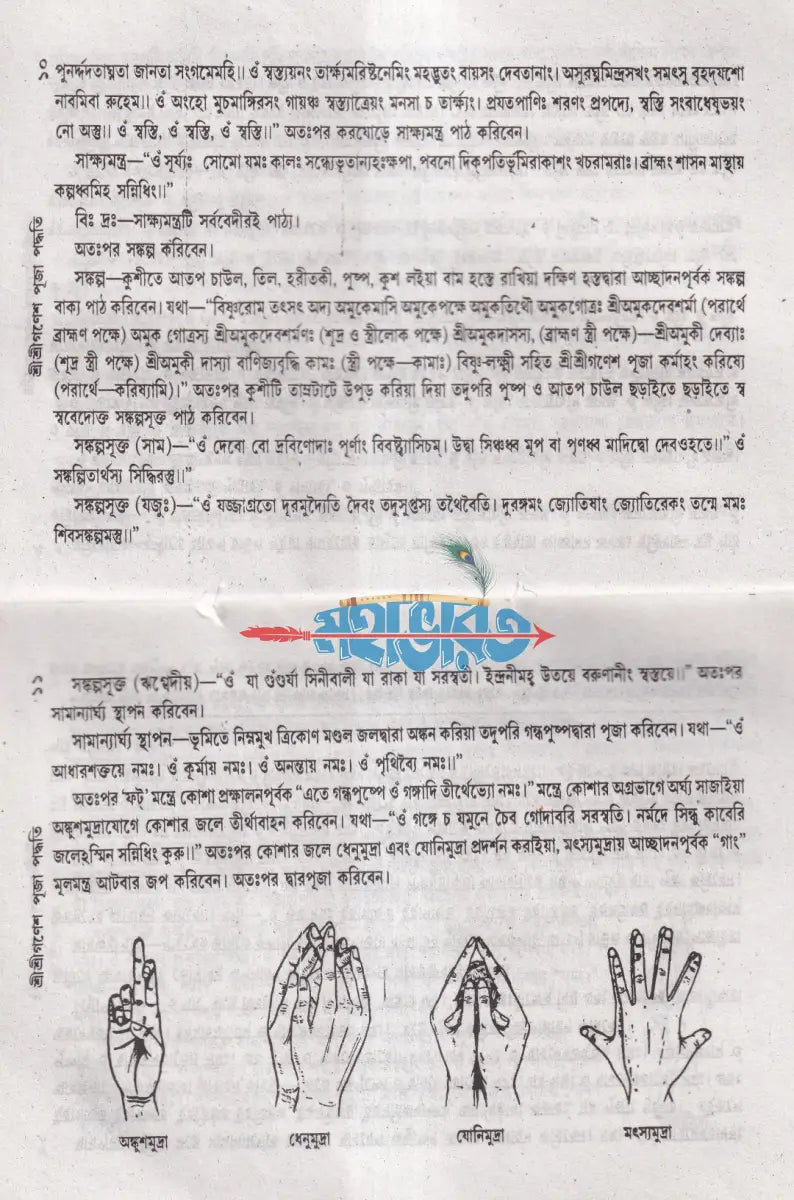 ১০
পুনর্দ্দদতাঘ্নতা জানতা সংগমেমহি।। ওঁ স্বস্ত্যয়নং তার্ক্ষ্যমরিষ্টনেমিং মহদ্ভূতং বায়সং দেবতানাং। অসুরঘ্নমিন্দ্রসখং সমৎসু বৃহদ্যশো
নাবমিবা রুহেম।। ওঁ অংহো মুচমাঙ্গিরসং গায়ঞ্চ স্বস্ত্যাত্রেয়ং মনসা চ তার্ক্ষ্যং। প্রযতপাণিঃ শরণং প্রপদ্যে, স্বস্তি সংবাধেষ্বভয়ং
নো অস্তু।। ওঁ স্বস্তি, ওঁ স্বস্তি, ওঁ স্বস্তি।।” অতঃপর করযোড়ে সাক্ষ্যমন্ত্র পাঠ করিবেন।
সাক্ষ্যমন্ত্র—“ওঁ সূর্য্যঃ সোমো যমঃ কালঃ সন্ধ্যেভূতান্যহঃক্ষপা, পবনো দিক্‌পতির্ভূমিরাকাশং খচরামরাঃ। ব্রাহ্মং শাসন মাস্থায়
কল্পধ্বমিহ সন্নিধিং।।”
বিঃ দ্রঃ—সাক্ষ্যমন্ত্রটি সর্ববেদীরই পাঠ্য।
অতঃপর সঙ্কল্প করিবেন।
সঙ্কল্প—কুশীতে আতপ চাউল, তিল, হরীতকী, পুষ্প, কুশ লইয়া বাম হস্তে রাখিয়া দক্ষিণ হস্তদ্বারা আচ্ছাদনপূর্বক সঙ্কল্প
বাক্য পাঠ করিবেন। যথা—“বিষ্ণুরোম্ তৎসৎ অদ্য অমুকেমাসি অমুকেপক্ষে অমুকতিথৌ অমুকগোত্রঃ শ্রীঅমুকদেবশর্মা (পরার্থে
ব্রাহ্মণ পক্ষে) অমুক গোত্রস্য শ্রীঅমুকদেবশর্মণঃ (শূদ্র ও স্ত্রীলোক পক্ষে) শ্রীঅমুকদাসস্য, (ব্রাহ্মণ স্ত্রী পক্ষে)—শ্রীঅমুকী দেব্যাঃ
(শূদ্র স্ত্রী পক্ষে) শ্রীঅমুকী দাস্যা বাণিজ্যবৃদ্ধি কামঃ (স্ত্রী পক্ষে—কামাঃ) বিষ্ণু-লক্ষ্মী সহিত শ্রীশ্রীগণেশ পূজা কর্মাহং করিষ্যে
(পরার্থে—করিষ্যামি)।” অতঃপর কুশীটি তাম্রটাটে উপুড় করিয়া দিয়া তদুপরি পুষ্প ও আতপ চাউল ছড়াইতে ছড়াইতে স্ব
স্ববেদোক্ত সঙ্কল্পসূক্ত পাঠ করিবেন।
সঙ্কল্পসূক্ত (সাম)—“ওঁ দেবো বো দ্রবিণোদাঃ পূর্ণাং বিবষ্ট্যাসিচম্। উদ্বা সিঞ্চধ্ব মুপ বা পৃণধ্ব মাদিদ্বো দেবওহতে।।” ওঁ
সঙ্কল্পিতার্থস্য সিদ্ধিরস্তু।।”
সঙ্কল্পসূক্ত (যজুঃ)—“ওঁ যজ্জাগ্রতো দূরমুদৈতি দৈবং তদুসুপ্তস্য তথৈবৈতি। দূরঙ্গমং জ্যোতিষাং জ্যোতিরেকং তন্মে মমঃ
শিবসঙ্কল্পমস্তু।।”
শ্রীশ্রীগণেশ পূজা পদ্ধতি
মহাভারত
১১
সঙ্কল্পসূক্ত (ঋগ্বেদীয়)—“ওঁ যা গুঁগুর্যা সিনীবালী যা রাকা যা সরস্বতী। ইন্দ্রনীমহ্ব উতয়ে বরুণানীং স্বস্তয়ে।।” অতঃপর
সামান্যার্ঘ্য স্থাপন করিবেন।
সামান্যার্ঘ্য স্থাপন—ভূমিতে নিম্নমুখ ত্রিকোণ মণ্ডল জলদ্বারা অঙ্কন করিয়া তদুপরি গন্ধপুষ্পদ্বারা পূজা করিবেন। যথা—“ওঁ
আধারশক্তয়ে নমঃ। ওঁ কূর্মায় নমঃ। ওঁ অনন্তায় নমঃ। ওঁ পৃথিব্যৈ নমঃ।।”
অতঃপর ‘ফট্’ মন্ত্রে কোশা প্রক্ষালনপূর্বক “এতে গন্ধপুষ্পে ওঁ গঙ্গাদি তীর্থেভ্যো নমঃ।” মন্ত্রে কোশার অগ্রভাগে অর্ঘ্য সাজাইয়া
অঙ্কুশমুদ্রাযোগে কোশার জলে তীর্থাবাহন করিবেন। যথা—“ওঁ গঙ্গে চ যমুনে চৈব গোদাবরি সরস্বতি। নর্মদে সিন্ধু কাবেরি
জলেহস্মিন সন্নিধিং কুরু।।” অতঃপর কোশার জলে ধেনুমুদ্রা এবং যোনিমুদ্রা প্রদর্শন করাইয়া, মৎস্যমুদ্রায় আচ্ছাদনপূর্বক “গাং”
মূলমন্ত্র আটবার জপ করিবেন। অতঃপর দ্বারপূজা করিবেন।
শ্রীশ্রীগণেশ পূজা পদ্ধতি
অঙ্কুশমুদ্রা
ধেনুমুদ্রা
যোনিমুদ্রা
মৎস্যমুদ্রা